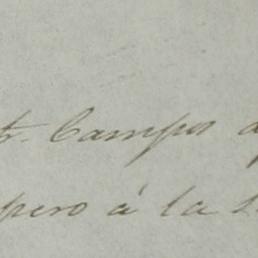 Campos
pero á la